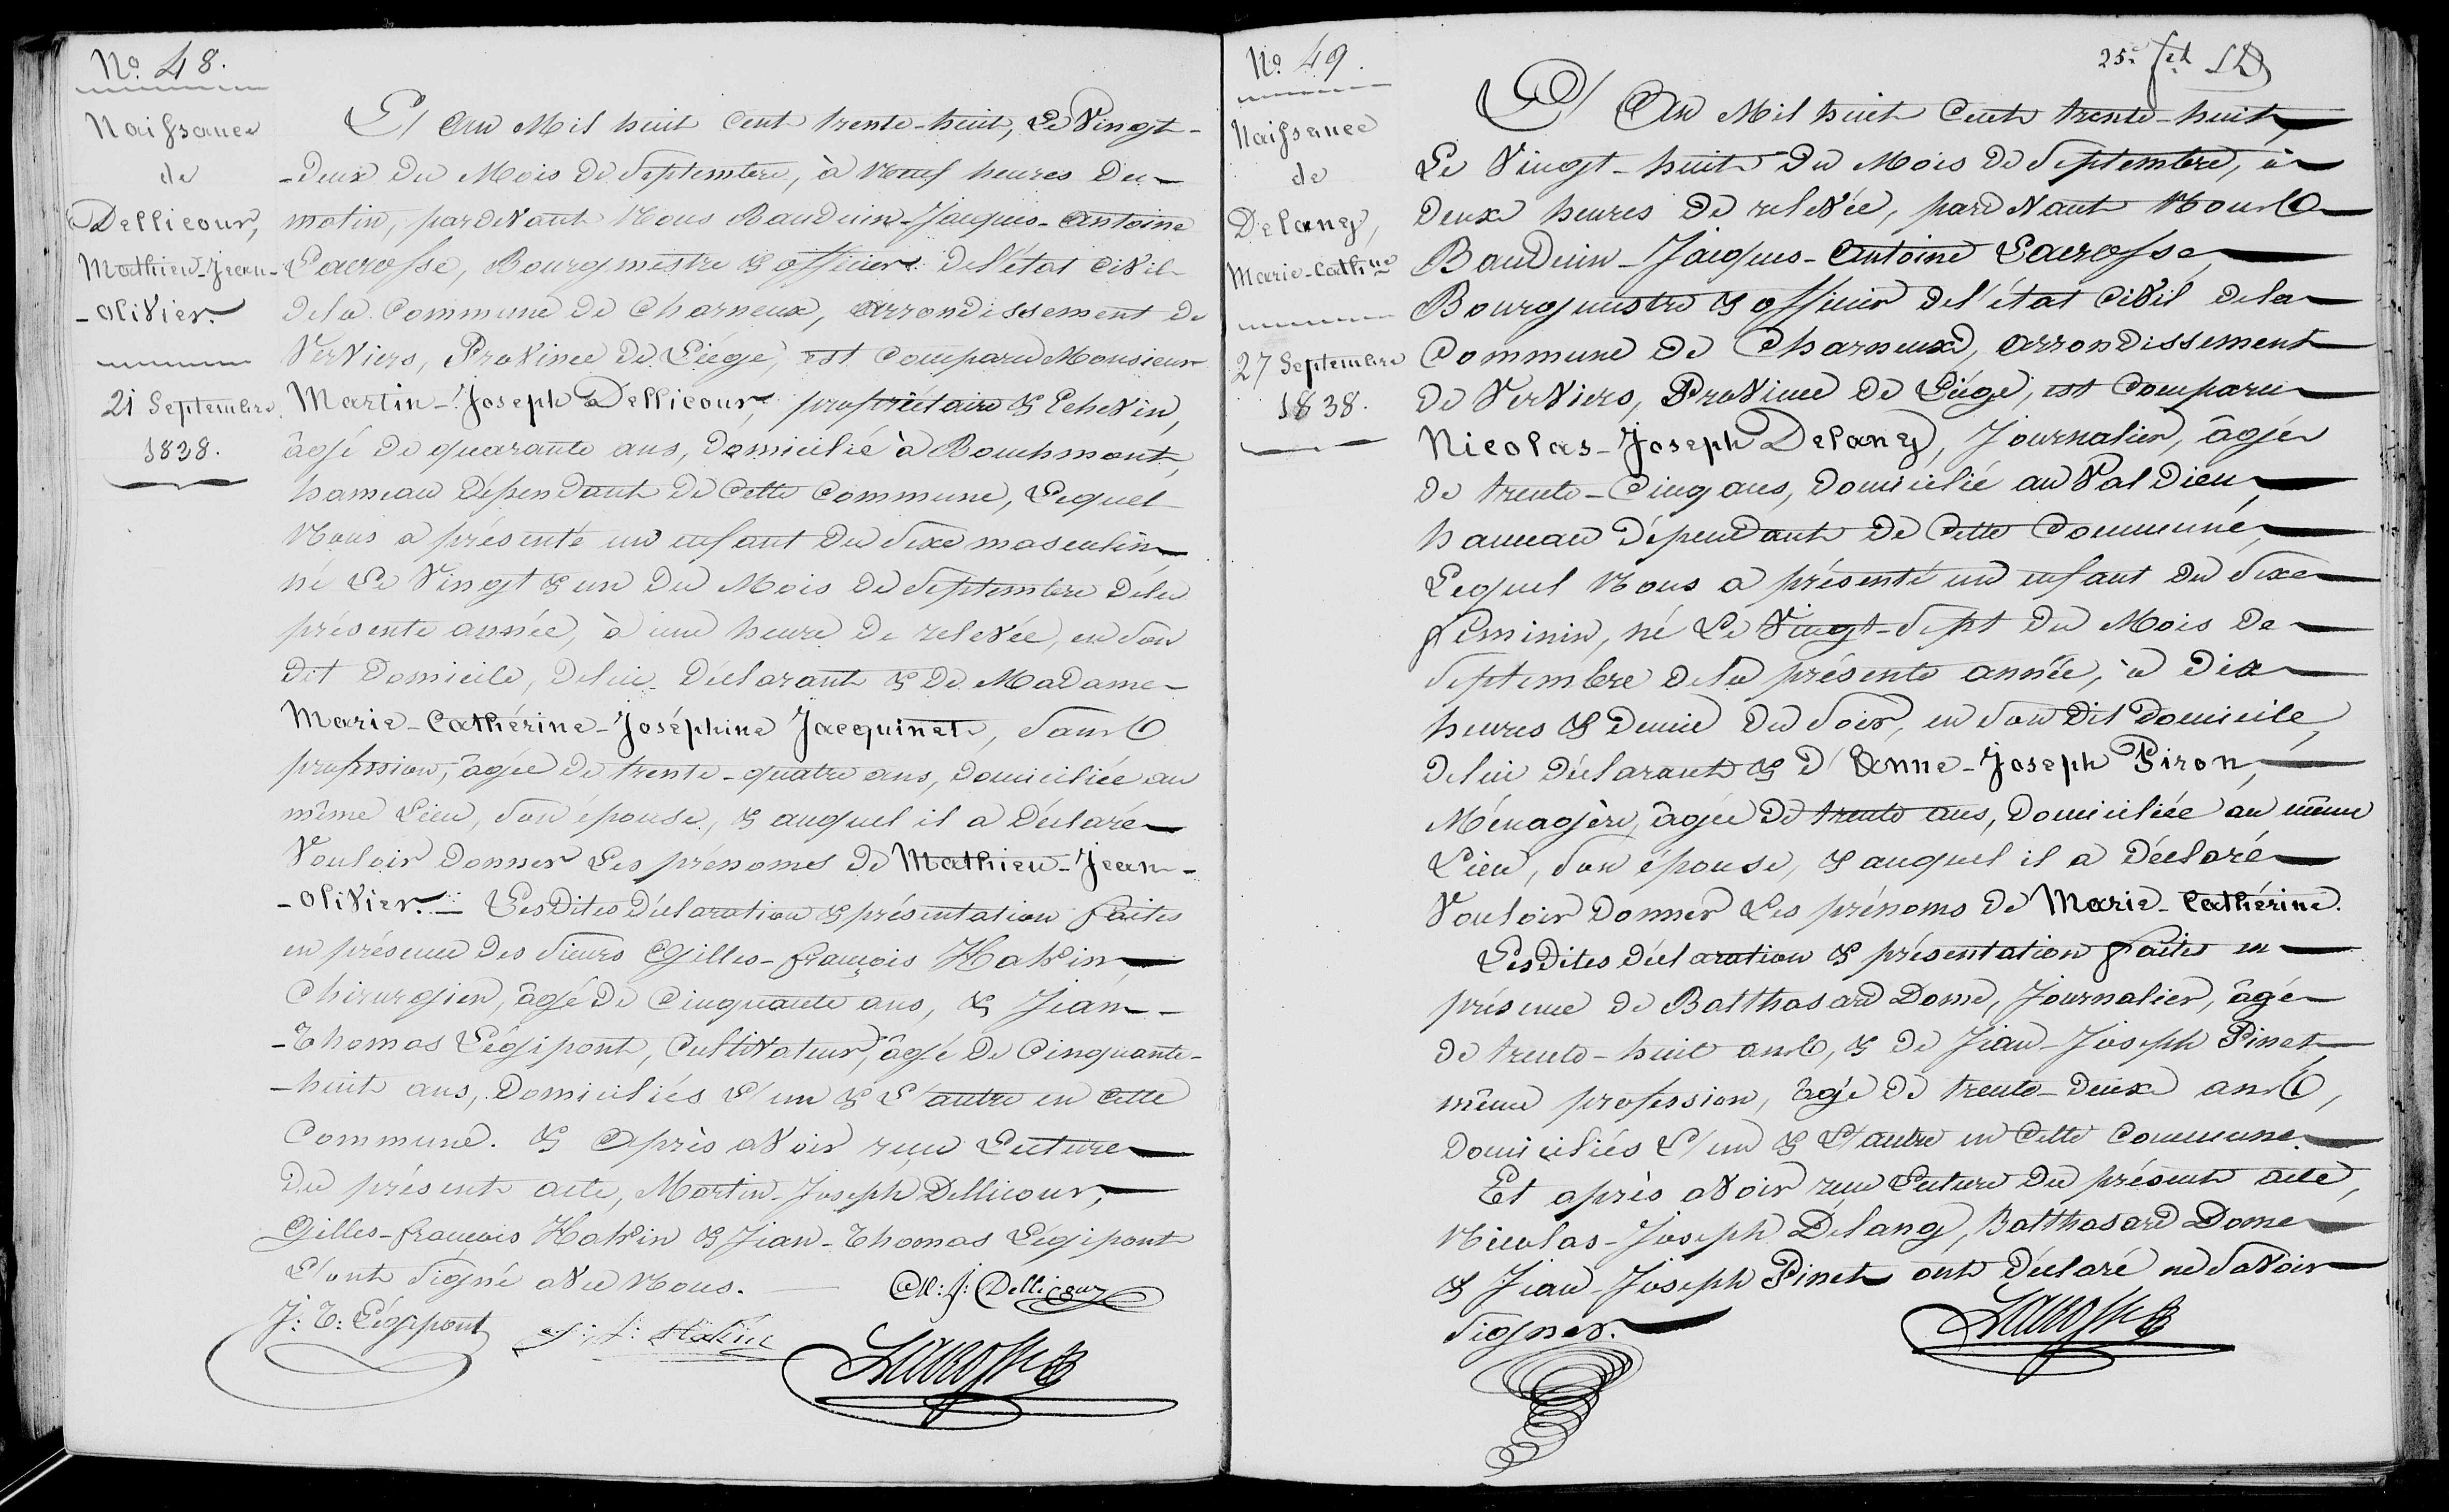 No. 48.
Naissance
de
Dellicour,
Mathieu-Jean-
-Olivier.
21 Septembre
1838.
L'An Mil huit Cent trente-huit, Le Vingt-
-deux du Mois de Septembre, à neuf heures du
matin, pardevant Nous Bauduin-Jacques-Antoine
Lacrosse, Bourgmestre & officier de l'état Civil
dela Commune de Charneux, arrondissement de
Verviers, Province de Liége, est Comparu Monsieur
Martin-Joseph Dellicour, propriétaire & Echevin,
âgé de quarante ans, domicilié à Bouxhmont,
hameau dépendant de Cette Commune, Lequel
Nous a présenté un enfant du Sexe masculin,
né Le Vingt & un du Mois de Septembre dela
présente année, à une heure de relevée, en son
dit Domicile, delui déclarant & de Madame
Marie-Cathérine-Joséphine Jacquinet, Sans
profession, âgée de trente-quatre ans, domiciliée au
même Lieu, son épouse, & auquel il a Déclaré
Vouloir donner Les prénoms de Mathieu-Jean-
-Olivier. Lesdites déclaration & présentation faites
en présence des Sieurs Gilles-françois Halvin,
Chirurgien, âgé de Cinquante ans, & Jean-
-Thomas Légipont, Cultivateur, âgé de Cinquante-
-huit ans, Domiciliés L'un & L'autre en Cette
Commune. & Après avoir reçu Lecture
du présent acte, Martin-Joseph Dellicour,
Gilles-françois Halvin & Jean-Thomas Légipont
L'ont Signé avec Nous.
M: J: Dellicour
J: T: Légipont
Lacrosse
No. 49.
Naissance
de
Delang,
Marie-Cathne
27 Septembre
1838.
25e
L'An Mil huit Cent trente-huit,
Le Vingt-huit du Mois de Septembre, à
deux heures de relevée, pardevant Nous
Bauduin-Jacques-Antoine Lacrosse,
Bourgmestre & officier del'état Civil dela
Commune de Charneux, arrondissement
de Verviers, Province de Liége, est Comparu
Nicolas-Joseph Delang, Journalier, âgé
de trente-Cinq ans, domicilié au Val Dieu,
hameau dépendant de Cette Commune,
Lequel Nous a présenté un enfant du Sexe
féminin, né Le Vingt-Sept du Mois de
Septembre dela présente année, à dix
heures & demie du Soir, en son dit Domicile,
delui déclarant & d'Anne-Joseph Piron,
Ménagère, âgée de trente ans, domiciliée au même
Lieu, son épouse, & auquel il a Déclaré
Vouloir donner Les prénoms de Marie-Cathérine.
Lesdites déclaration & présentation faites en
présence de Balthasard Dome, Journalier, âgé
de trente-huit ans, & de Jean-Joseph Pinet,
même profession, âgé de trente-deux ans,
Domiciliés L'un & L'autre en Cette Commune.
Et après avoir reçu Lecture du présent acte,
Nicolas-Joseph Delang, Balthasard Dome
& Jean-Joseph Pinet ont déclaré ne Savoir
Signer.
Lacrosse